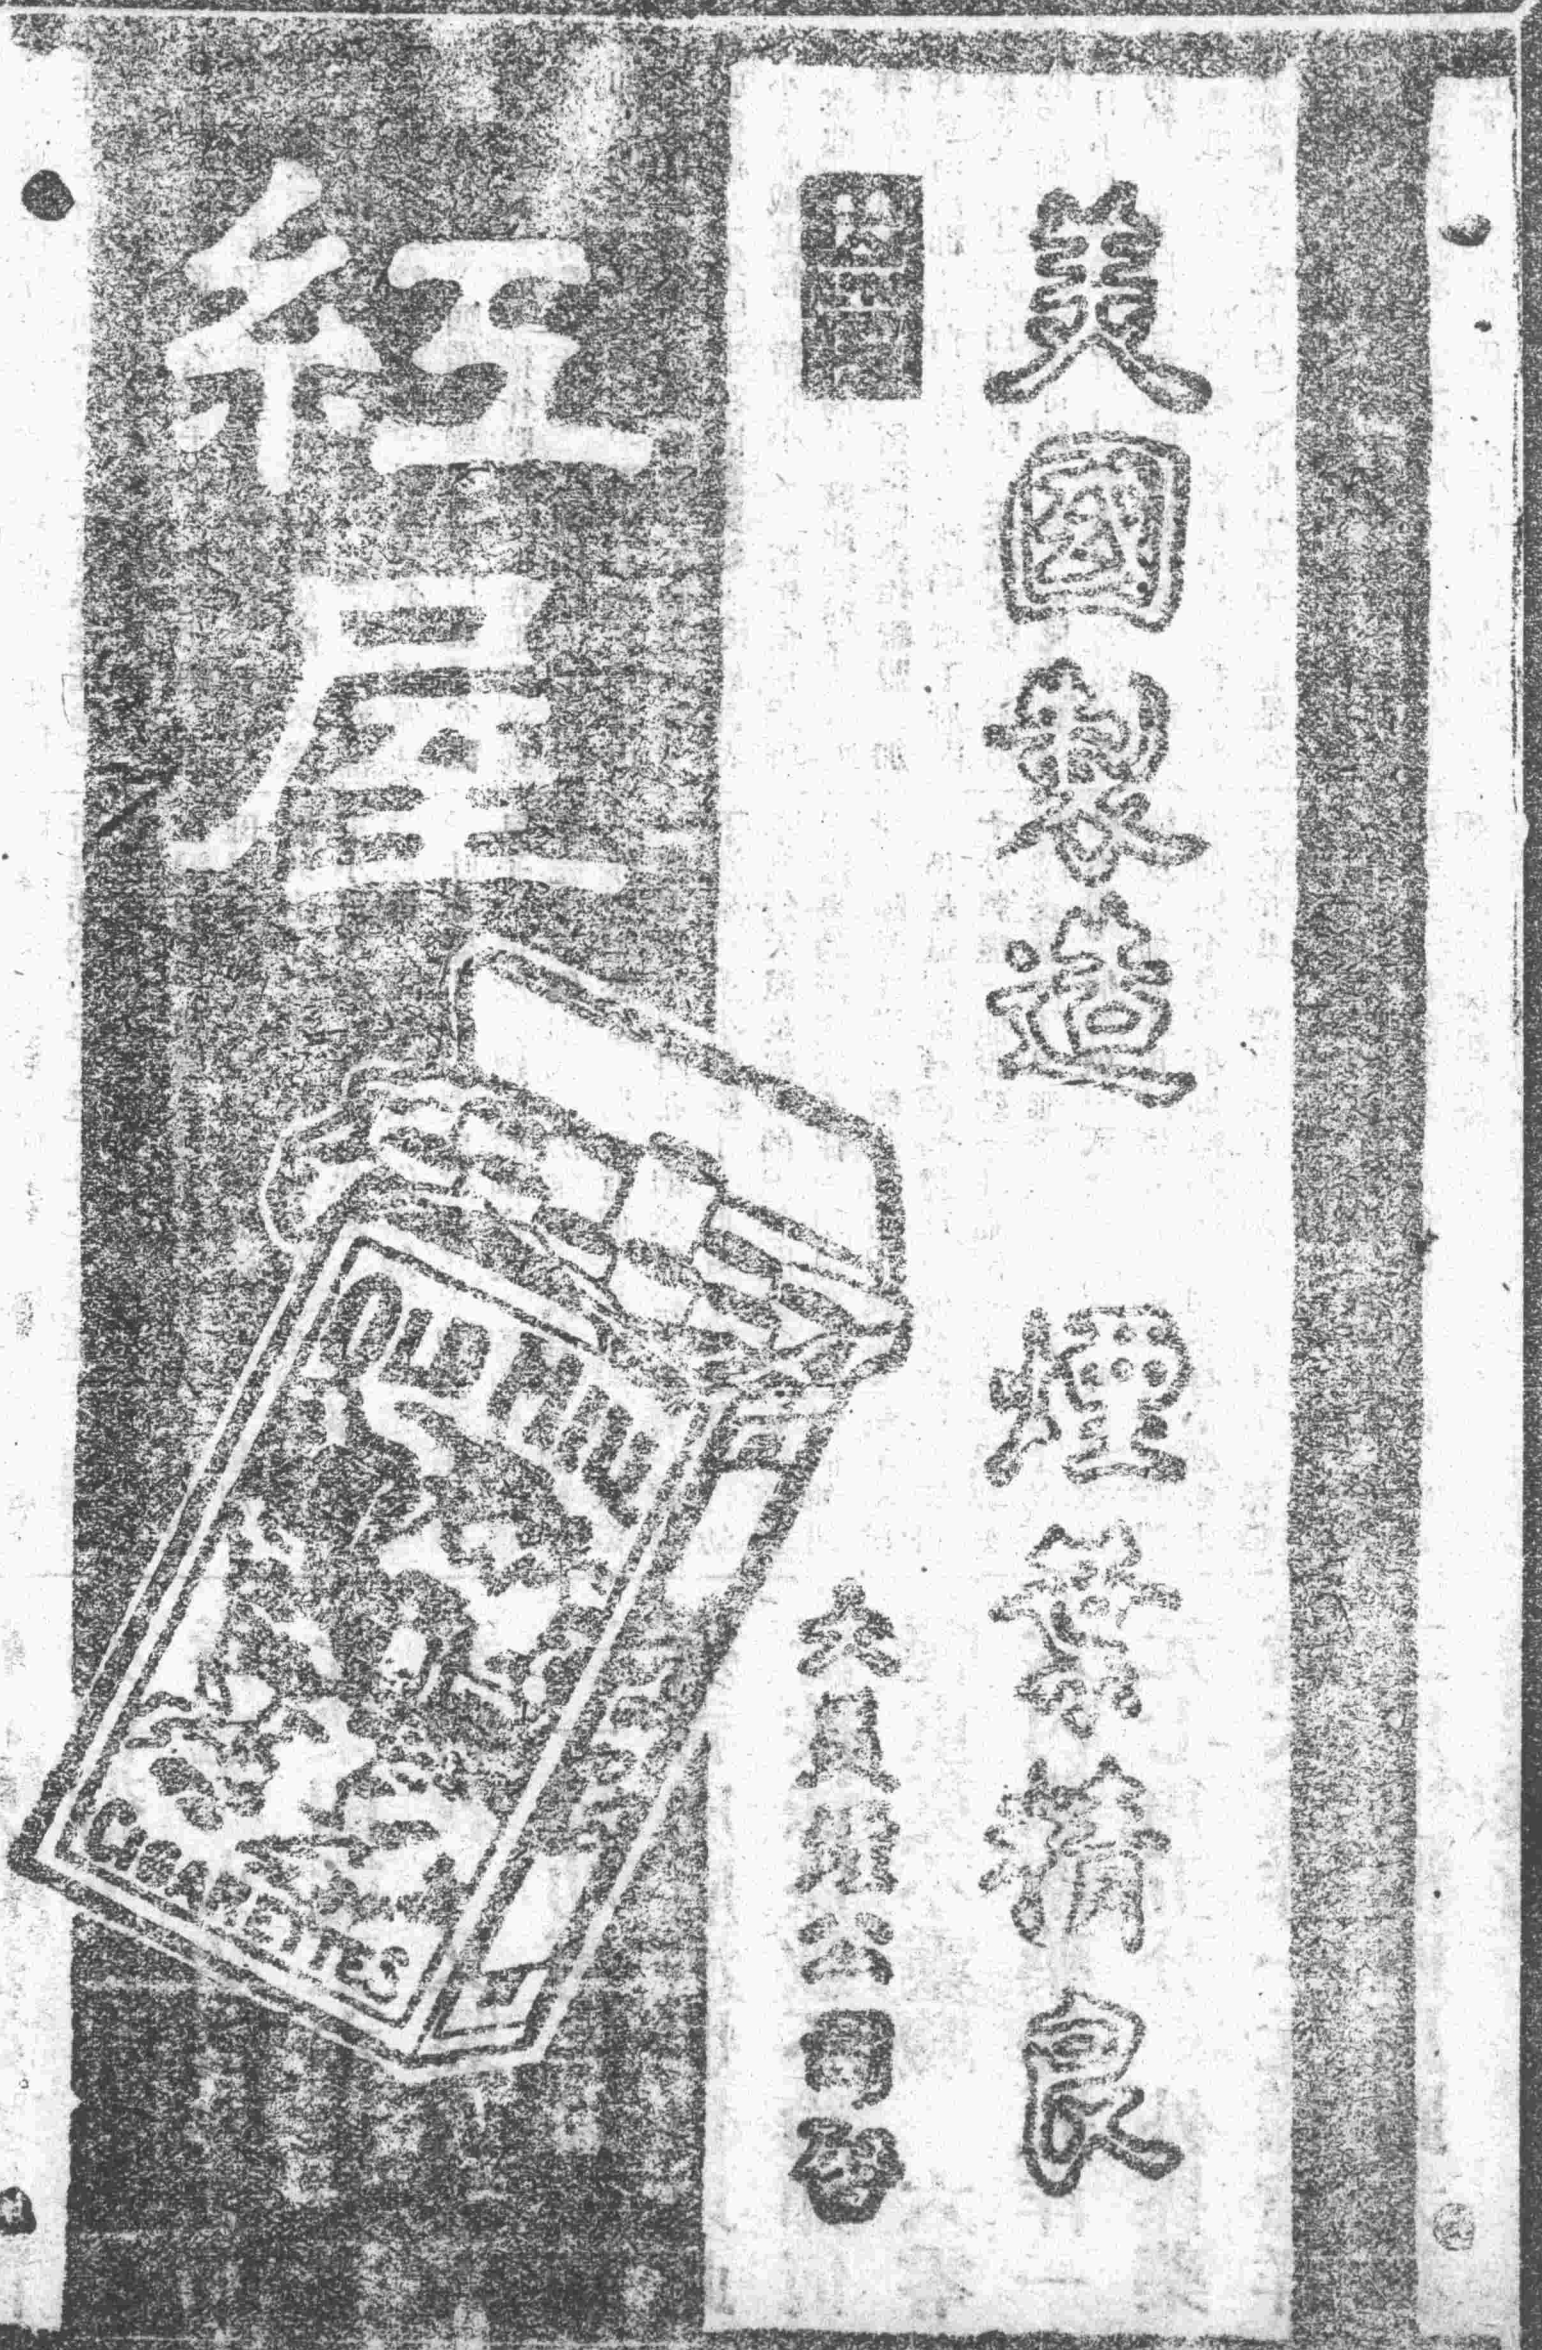 美國製造 煙葉精良
煙公司啓
紅屋
OLD MILL
CIGARETTES